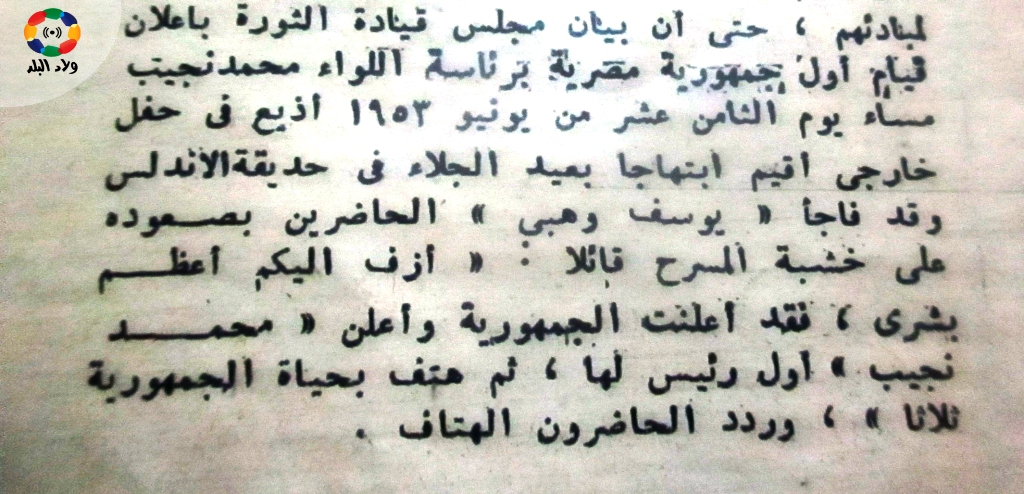 ولاد البلد
لمبادئهم ، حتى أن بيان مجلس قيادة الثورة باعلان
قيام أول جمهورية مصرية برئاسة اللواء محمدنجيب
مساء يوم الثامن عشر من يونيو ١٩٥٣ أذيع فى حفل
خارجى أقيم ابتهاجا بعيد الجلاء فى حديقةالأندلس
وقد فاجأ « يوسف وهبي » الحاضرين بصــعوده
على خشبة المسرح قائلا : « أزف اليكم أعظــــم
بشرى ، فقد أعلنت الجمهورية وأعلن « محمــــد
نجيب » أول رئيس لها ، ثم هتف بحياة الجمهورية
ثلاثا » ، وردد الحاضرون الهتاف .